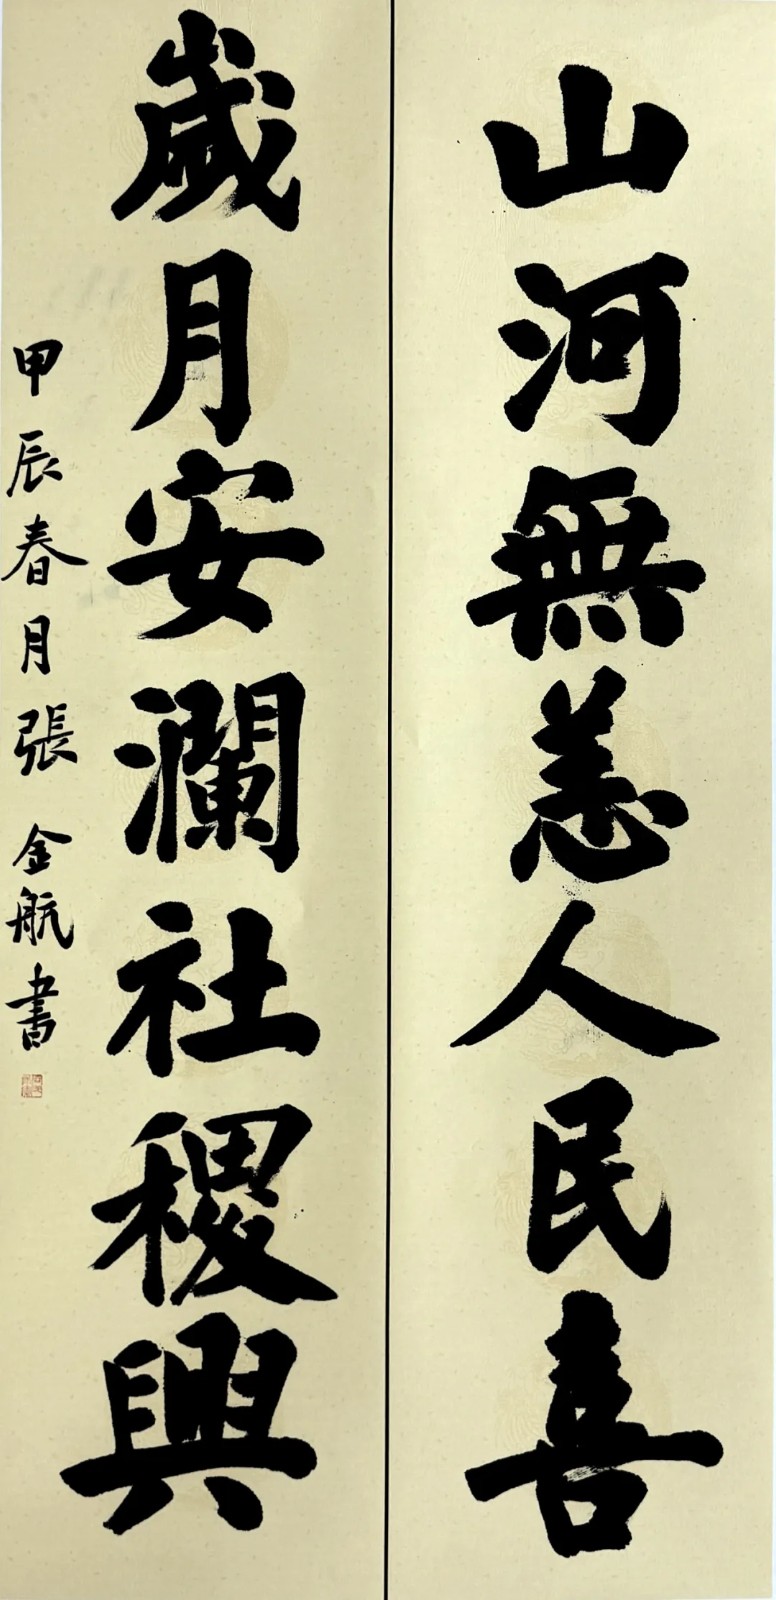 山河無恙人民喜
歲月安瀾社稷興
甲辰春月張金航書